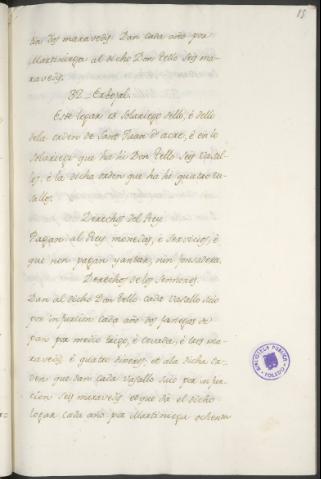 15
din dos maravedis. Dan cada año por
Martiniega al dicho Don Tello Seis ma-
ravedis.
32 Erbojal.
Este logar es Solariego dello, è dello
dela orden de Sant Juan d'acre, è en lo
Solariego que ha hi Don Tello Seis Vasall-
os, è la dicha orden que ha hi quatro va-
sallos.
Derechos del Rey
Pagan al Rey monedas, è Servicios, è
que non pagan yantar, nin fonsadera.
Derechos de los Sennores.
Dan al dicho Don Tello cada Vasallo suio
por infurcion cada año dos fanegas de
pan por medio trigo, è cevada, è tres ma-
ravedis è quatro dineros, et ala dicha or-
den que dan cada Vasallo suio por infur-
cion Seis maravedis et que dà el dicho
logar cada año por Martiniega ochenta
BIBLIOTECA PUBLICA
TOLEDO